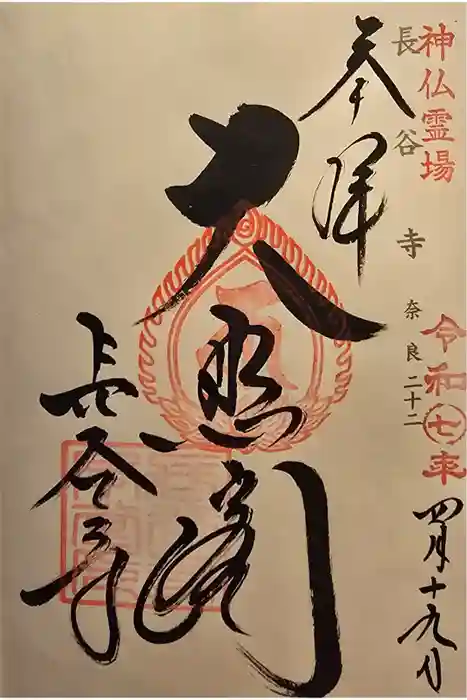 神仏霊場
長谷寺 奈良二十二
令和七年
四月十九日
奉拝
大悲閣
長谷寺